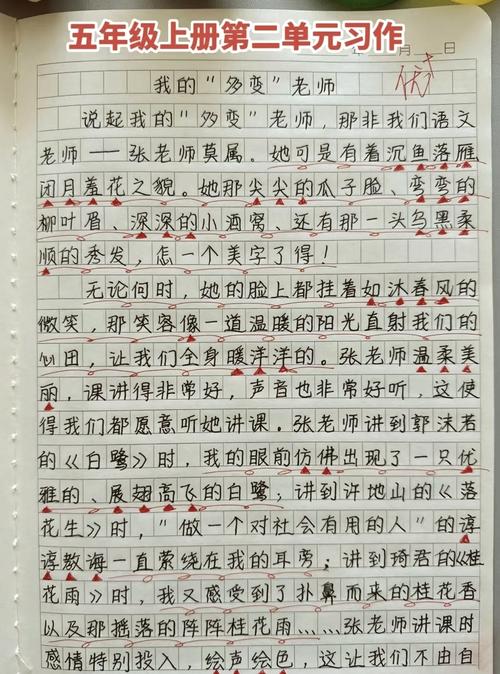 五年级上册第二单元习作
月 日
优+
我的“多变”老师
说起我的“多变”老师，那非我们语文
老师——张老师莫属。她可是有着沉鱼落雁
闭月羞花之貌。她那尖尖的瓜子脸、弯弯的
柳叶眉、深深的小酒窝、还有那一头乌黑柔
顺的秀发，怎一个美字了得！
无论何时，她的脸上都挂着如沐春风的
微笑，那笑容像一道温暖的阳光直射我们的
心田，让我们全身暖洋洋的。张老师温柔美
丽，课讲得非常好，声音也非常好听，这使
得我们都愿意听她讲课。张老师讲到郭沫若
的《白鹭》时，我的眼前仿佛出现了一只优
雅的、展翅高飞的白鹭；讲到许地山的《落
花生》时，“做一个对社会有用的人”的谆
谆教诲一直萦绕在我的耳旁；讲到琦君的《桂
花雨》时，我又感受到了扑鼻而来的桂花香
以及那摇落的阵阵桂花雨……张老师讲课时
感情特别投入，绘声绘色，这让我们不由自